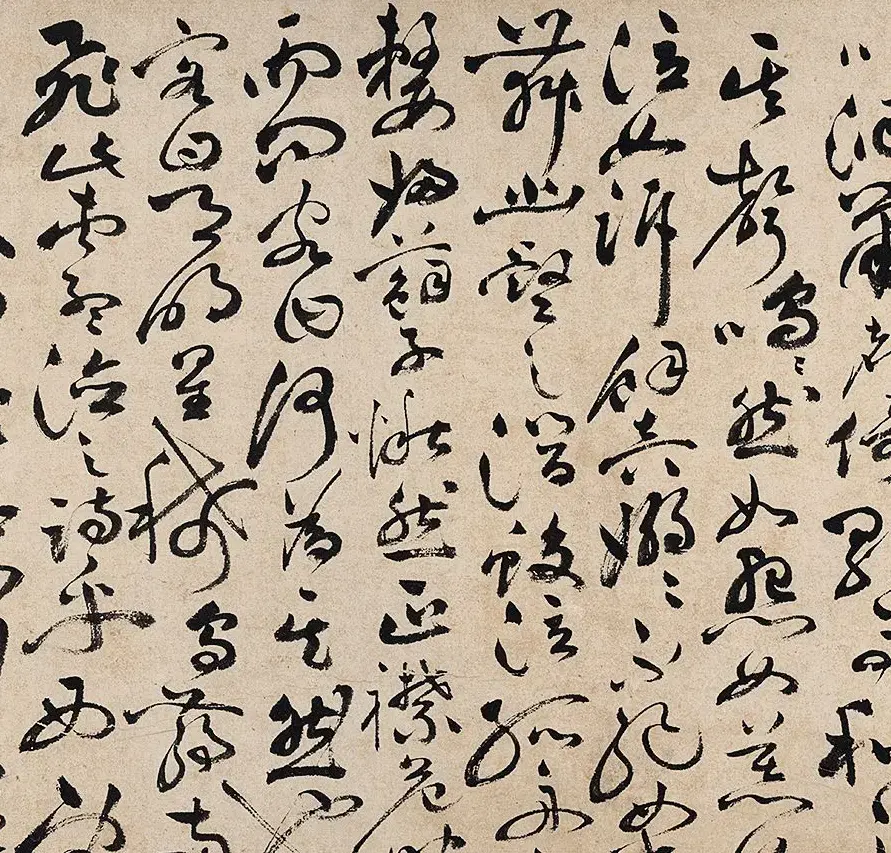 洞簫者倚歌而和
其聲嗚嗚然如怨如慕
泣如訴餘音嫋嫋不絕如
舞幽壑之潛蛟泣孤舟
嫠婦蘇子愀然正襟危坐
而問客曰何為其然也
客曰月明星稀烏鵲南
飛此曹孟德之詩乎西望